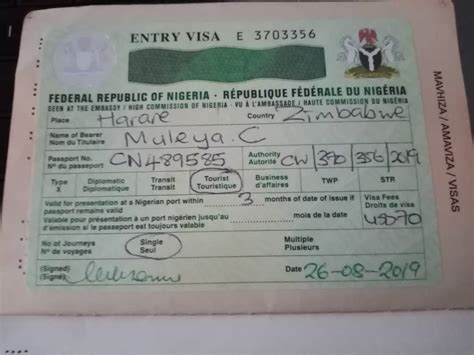 ENTRY VISA E 3703356
FEDERAL REPUBLIC OF NIGERIA - RÉPUBLIQUE FÉDÉRALE DU NIGÉRIA
SEEN AT THE EMBASSY / HIGH COMMISSION OF NIGERIA - VU À L'AMBASSADE / HAUTE COMMISSION DU NIGÉRIA
Place Harare Country Zimbabwe
Name of Bearer Muleya. C
Nom du Titulaire
Passport No. CN489585 Authority CW 370 356 2019
Nº du passport Autorité
Type Diplomatic Transit Tourist Business TWP STR
X Diplomatique Transit Touristique d'affaires
Valid for presentation at a Nigerian port within 3 months of date of issue if Visa Fees
passport remains valid Droits de visa
Valable pour présentation un port nigérien jusqu'au mois de la date USD70
d'émission si passeport est toujours valable
No of Journeys Single Multiple
Nº de voyages Seul Plusieurs
(Signed) Date 26-08-2019
(Signé)
MAVHIZA / AMAVIZA / VISAS